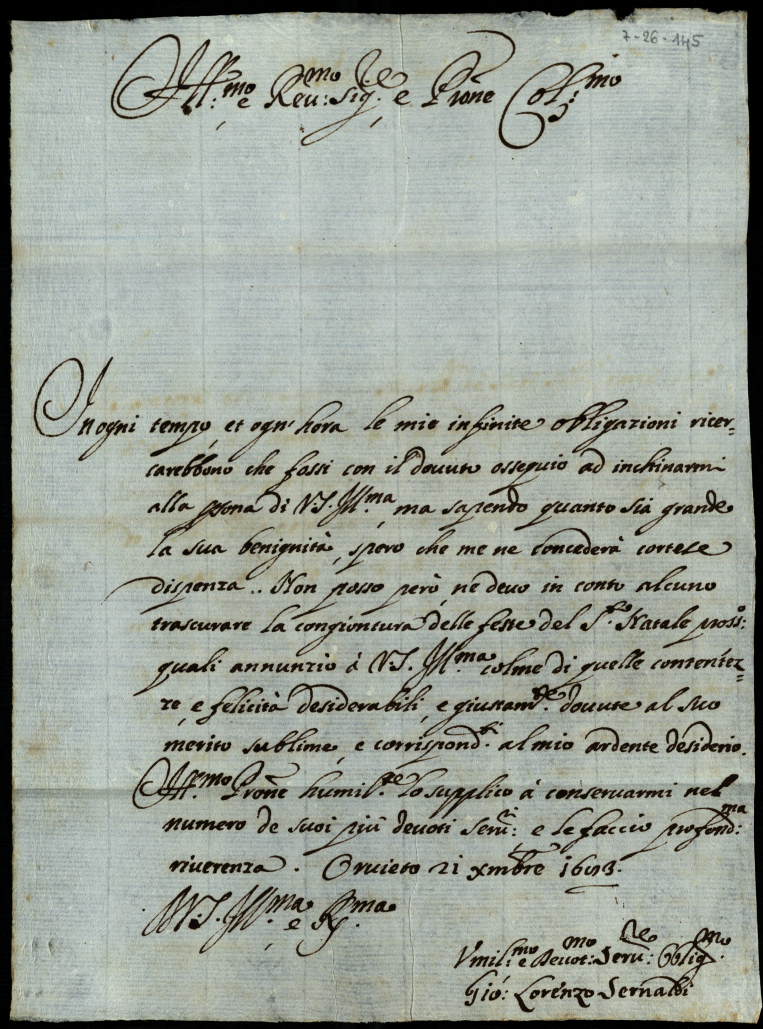 7-26-145
Ill:mo e Reu:mo Sig:re e Prone Col:mo
In ogni tempo, et ogn'hora le mie infinite obligazioni ricer=
carebbono che fossi con il douuto ossequio ad inchinarmi
alla prona di V.S. Ill:ma, ma sapendo quanto sia grande
la sua benignità, spero che me ne concederà cortese
dispenza.. Non posso però, ne deuo in conto alcuno
trascurare la congiontura delle feste del S:to Natale pross:o
quali annunzio à V.S. Ill:ma colme di quelle contentez=
ze, e felicità desiderabili, e giustam:te douute al suo
merito sublime, e corrispond:ti al mio ardente desiderio.
Ill:mo Prone humil:te lo supplico à conseruarmi nel
numero de suoi più deuoti Seru:ri, e le faccio profond:ma
riuerenza. Oruieto 21 xmbre
D V.S. Ill:ma e R:ma
Vmil:mo e Deuot:mo Seru:re Oblig:mo
Gio: Lorenzo